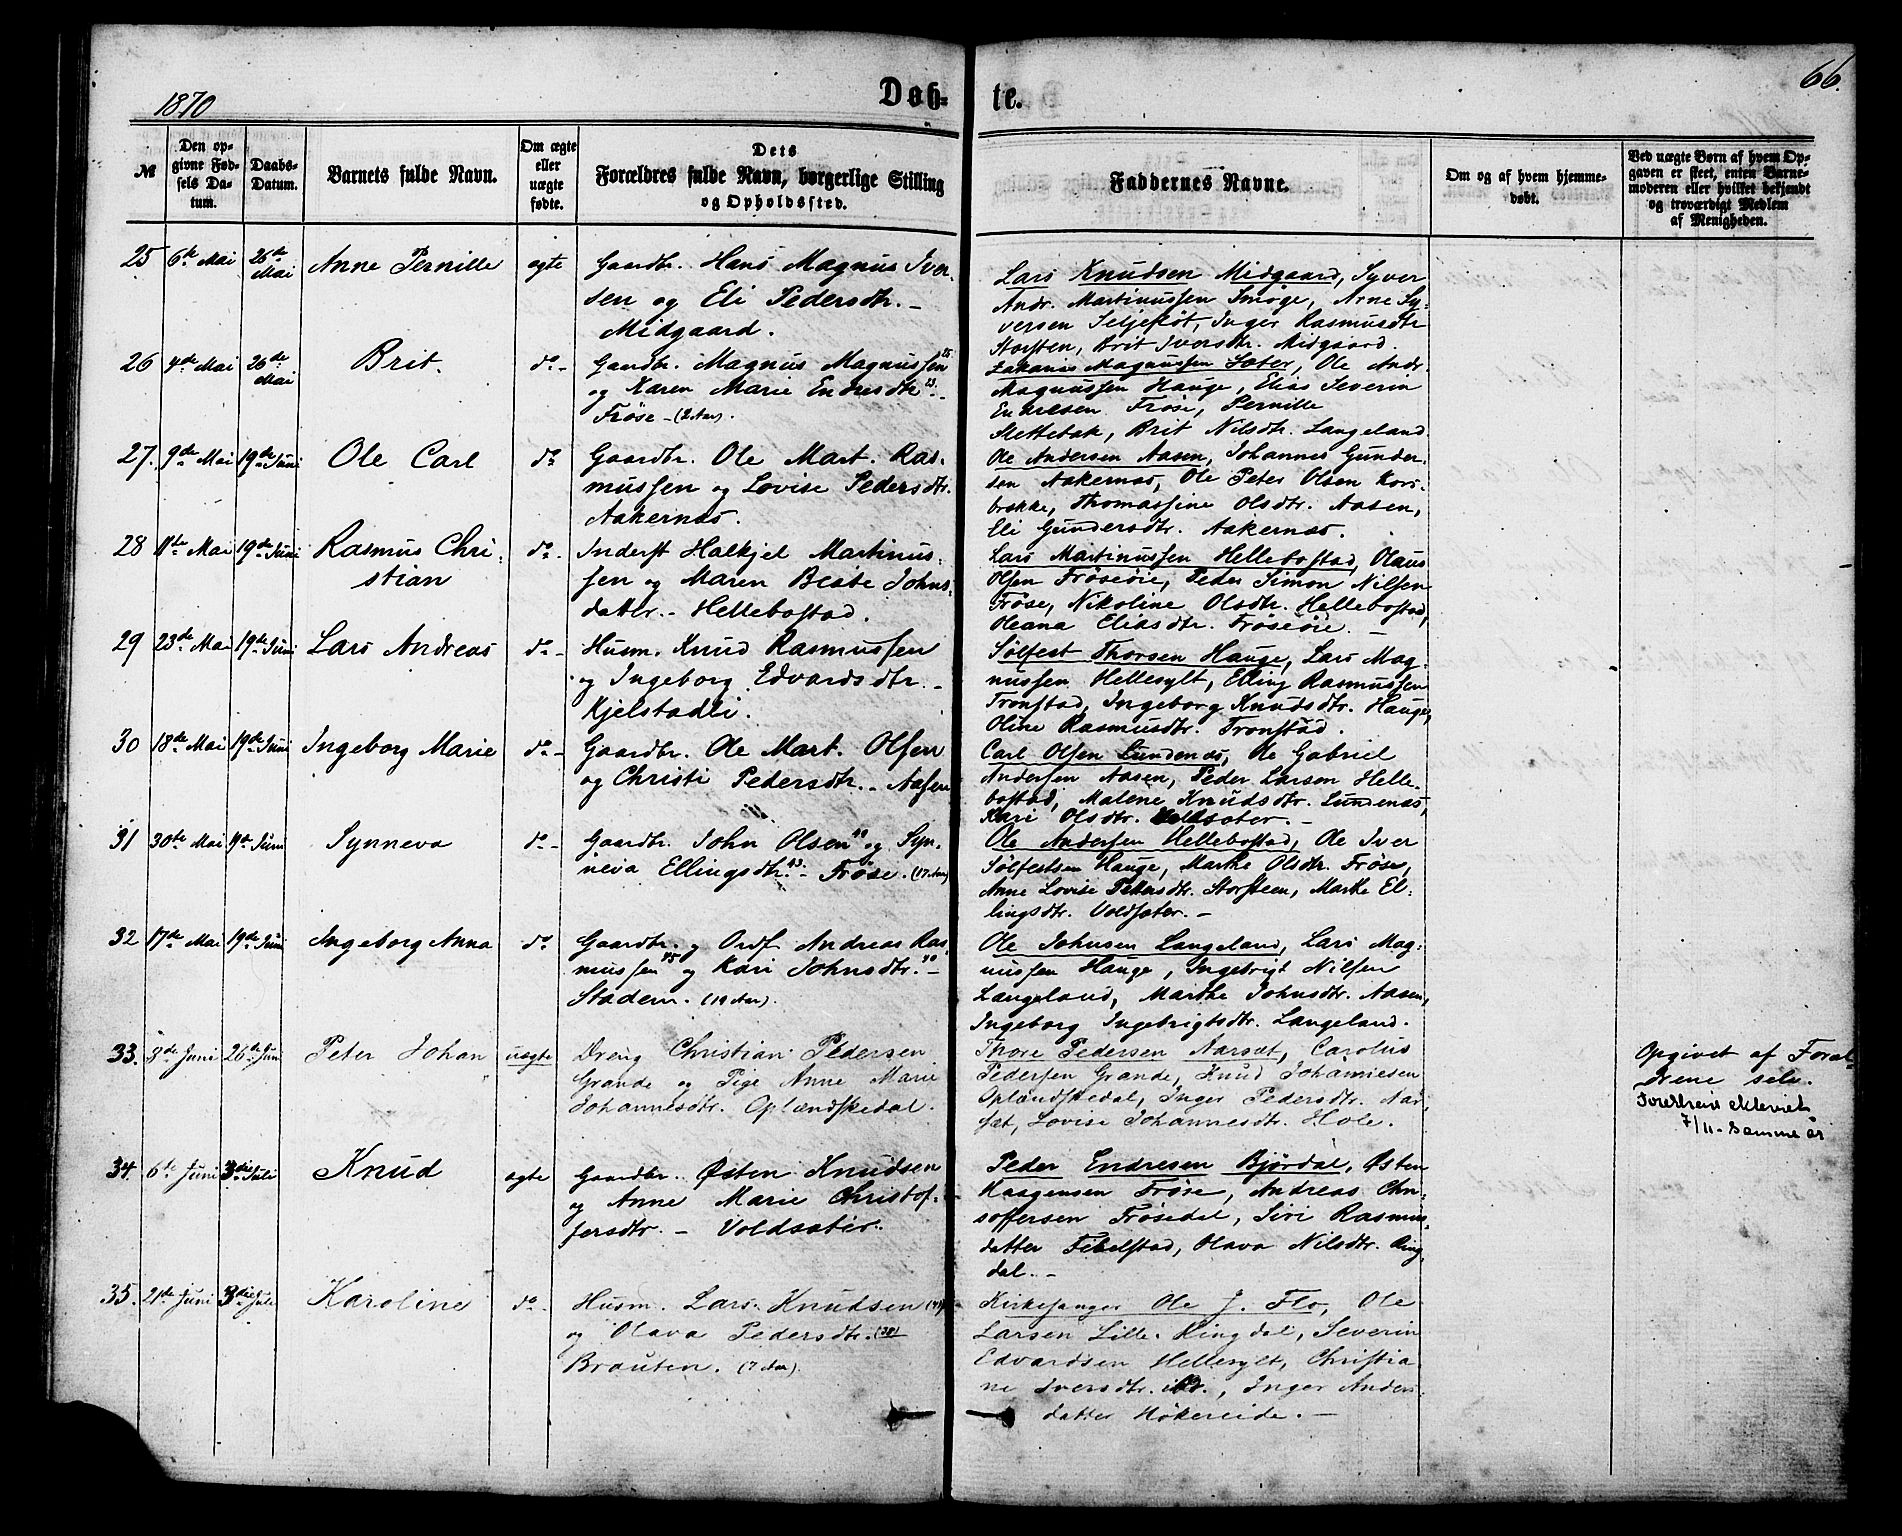 1870
Døb-
te.
66.
№
Den op-
givne Fød-
sels Da-
tum.
Daabs-
Datum.
Barnets fulde Navn.
Om ægte
eller
uægte
fødte.
Dets
Forældres fulde Navn, borgerlige Stilling
og Opholdssted.
Faddernes Navne.
Om og af hvem hjemme-
døbt.
Ved uægte Børn af hvem Op-
gaven er skeet, enten Barne-
moderen eller hvilket bekjendt
og troværdigt Medlem
af Menigheden.
25 6te Mai 26de Mai Anne Pernille ægte
Gaardbr. Hans Magnus Iver-
sen og Eli Pedersdtr. -
Midgaard.
Lars Knudsen Midgaard, Syver
Andr. Martinussen Smoge, Arne Sy-
versen Seljeflöt, Inger Rasmusdtr
Storsten, Brit Iversdtr. Midgaard.
26 4de Mai 26de Mai Brit. do -
Gaardbr. Magnus Magnussen 25
og Karen Marie Endresdtr. 23. -
Fröse - (2 Aar).
Zakarias Magnussen Sæter, Ole Andr.
Magnussen Hauge, Elias Severin
Endresen Fröse, Pernille
Slettebak, Brit Nilsdtr. Langeland.
27. 9de Mai 19de Juni Ole Carl do
Gaardbr. Ole Mart. Ras-
mussen og Lovise Pedersdtr.
Aakernæs.
Ole Andersen Aasen, Johannes Gunder-
sen Aakernæs, Ole Peter Olsen Kors-
brekke, Thomassine Olsdtr. Aasen,
Eli Gundersdtr. Aakernæs.
28 11te Mai 19de Juni Rasmus Chri-
stian do -
Inderst Halkjel Martinus-
sen og Maren Beate Johns-
datter. - Hellebostad.
Lars Martinussen Hellebostad, Olaus
Olsen Fröseöie, Peder Simon Nilsen
Fröse, Nikoline Olsdtr. Hellebostad,
Oleana Eliasdtr. Fröseöie. -
29 23de Mai 19de Juni Lars Andreas do -
Husm. Knud Rasmussen
og Ingeborg Edvardsdtr. -
Kjelstadli.
Sölfest Thorsen Hauge, Lars Mag-
nussen Hellesylt, Elling Rasmussen
Tronstad, Ingeborg Knudsdtr. Hauge,
Oline Rasmusdtr. Tronstad.
30 18de Mai 19de Juni Ingeborg Marie do -
Gaardbr. Ole Mart. Olsen
og Christi Pedersdtr. - Aasen
Carl Olsen Lundenæs, Ole Gabriel
Andersen Aasen, Peder Larsen Helle-
bostad, Malene Knudsdtr. Lundenæs,
Kari Olsdtr. Voldsæter. -
31 30te Mai 19de Juni Synneva do -
Gaardbr. John Olsen 40 og Syn-
neva Ellingsdtr. 43. - Fröse. (17 Aar)
Ole Andersen Hellebostad, Ole Iver
Sölfestsen Hauge, Marthe Olsdtr. Fröse,
Anne Lovise Petersdtr. Storsteen, Marthe El-
lingsdtr. Voldsæter. -
32 17de Mai 19de Juni Ingeborg Anna do
Gaardbr. og Ordf. Andreas Ras-
mussen 45 og Kari Johnsdtr. 40 -
Stadem. (19 Aar).
Ole Johnsen Langeland, Lars Mag-
nussen Hauge, Ingebrigt Nilsen
Langeland, Marthe Johnsdtr. Aasen,
Ingeborg Ingebrigtsdtr. Langeland.
33. 3de Juni 26de Juni Peter Johan uægte
Dreng Christian Pedersen
Grande og Pige Anne Marie
Johannesdtr. Oplændskedal.
Thore Pedersen Aarsæt, Carolus
Pedersen Grande, Knud Johannesen
Oplændskedal, Inger Pedersdtr. Aar-
sæt, Lovise Johannesdtr. Hole.
Opgivet af Foræl-
drene selv.
Forældrene ekteviet
7/11 - samme år
34. 6te Juni 3die Juli Knud ægte
Gaardbr. Østen Knudsen
og Anne Marie Christof-
fersdtr. - Voldsæter.
Peder Endresen Bjørdal, Østen
Haagensen Fröse, Andreas Chri-
stoffersen Frösedal, Siri Rasmus-
datter Fivelstad, Olava Nilsdtr. Ring-
dal. -
35. 21de Juni 3die Juli Karoline do -
Husm. Lars Knudsen
og Olava Pedersdtr. (38)
Brauten. (7 Aar).
Kirkesanger Ole J. Flo, Ole
Larsen Lille-Ringdal, Severin
Edvardsen Hellesylt, Christia-
ne Iversdtr. ibd., Inger Anders-
datter Hökereide. -